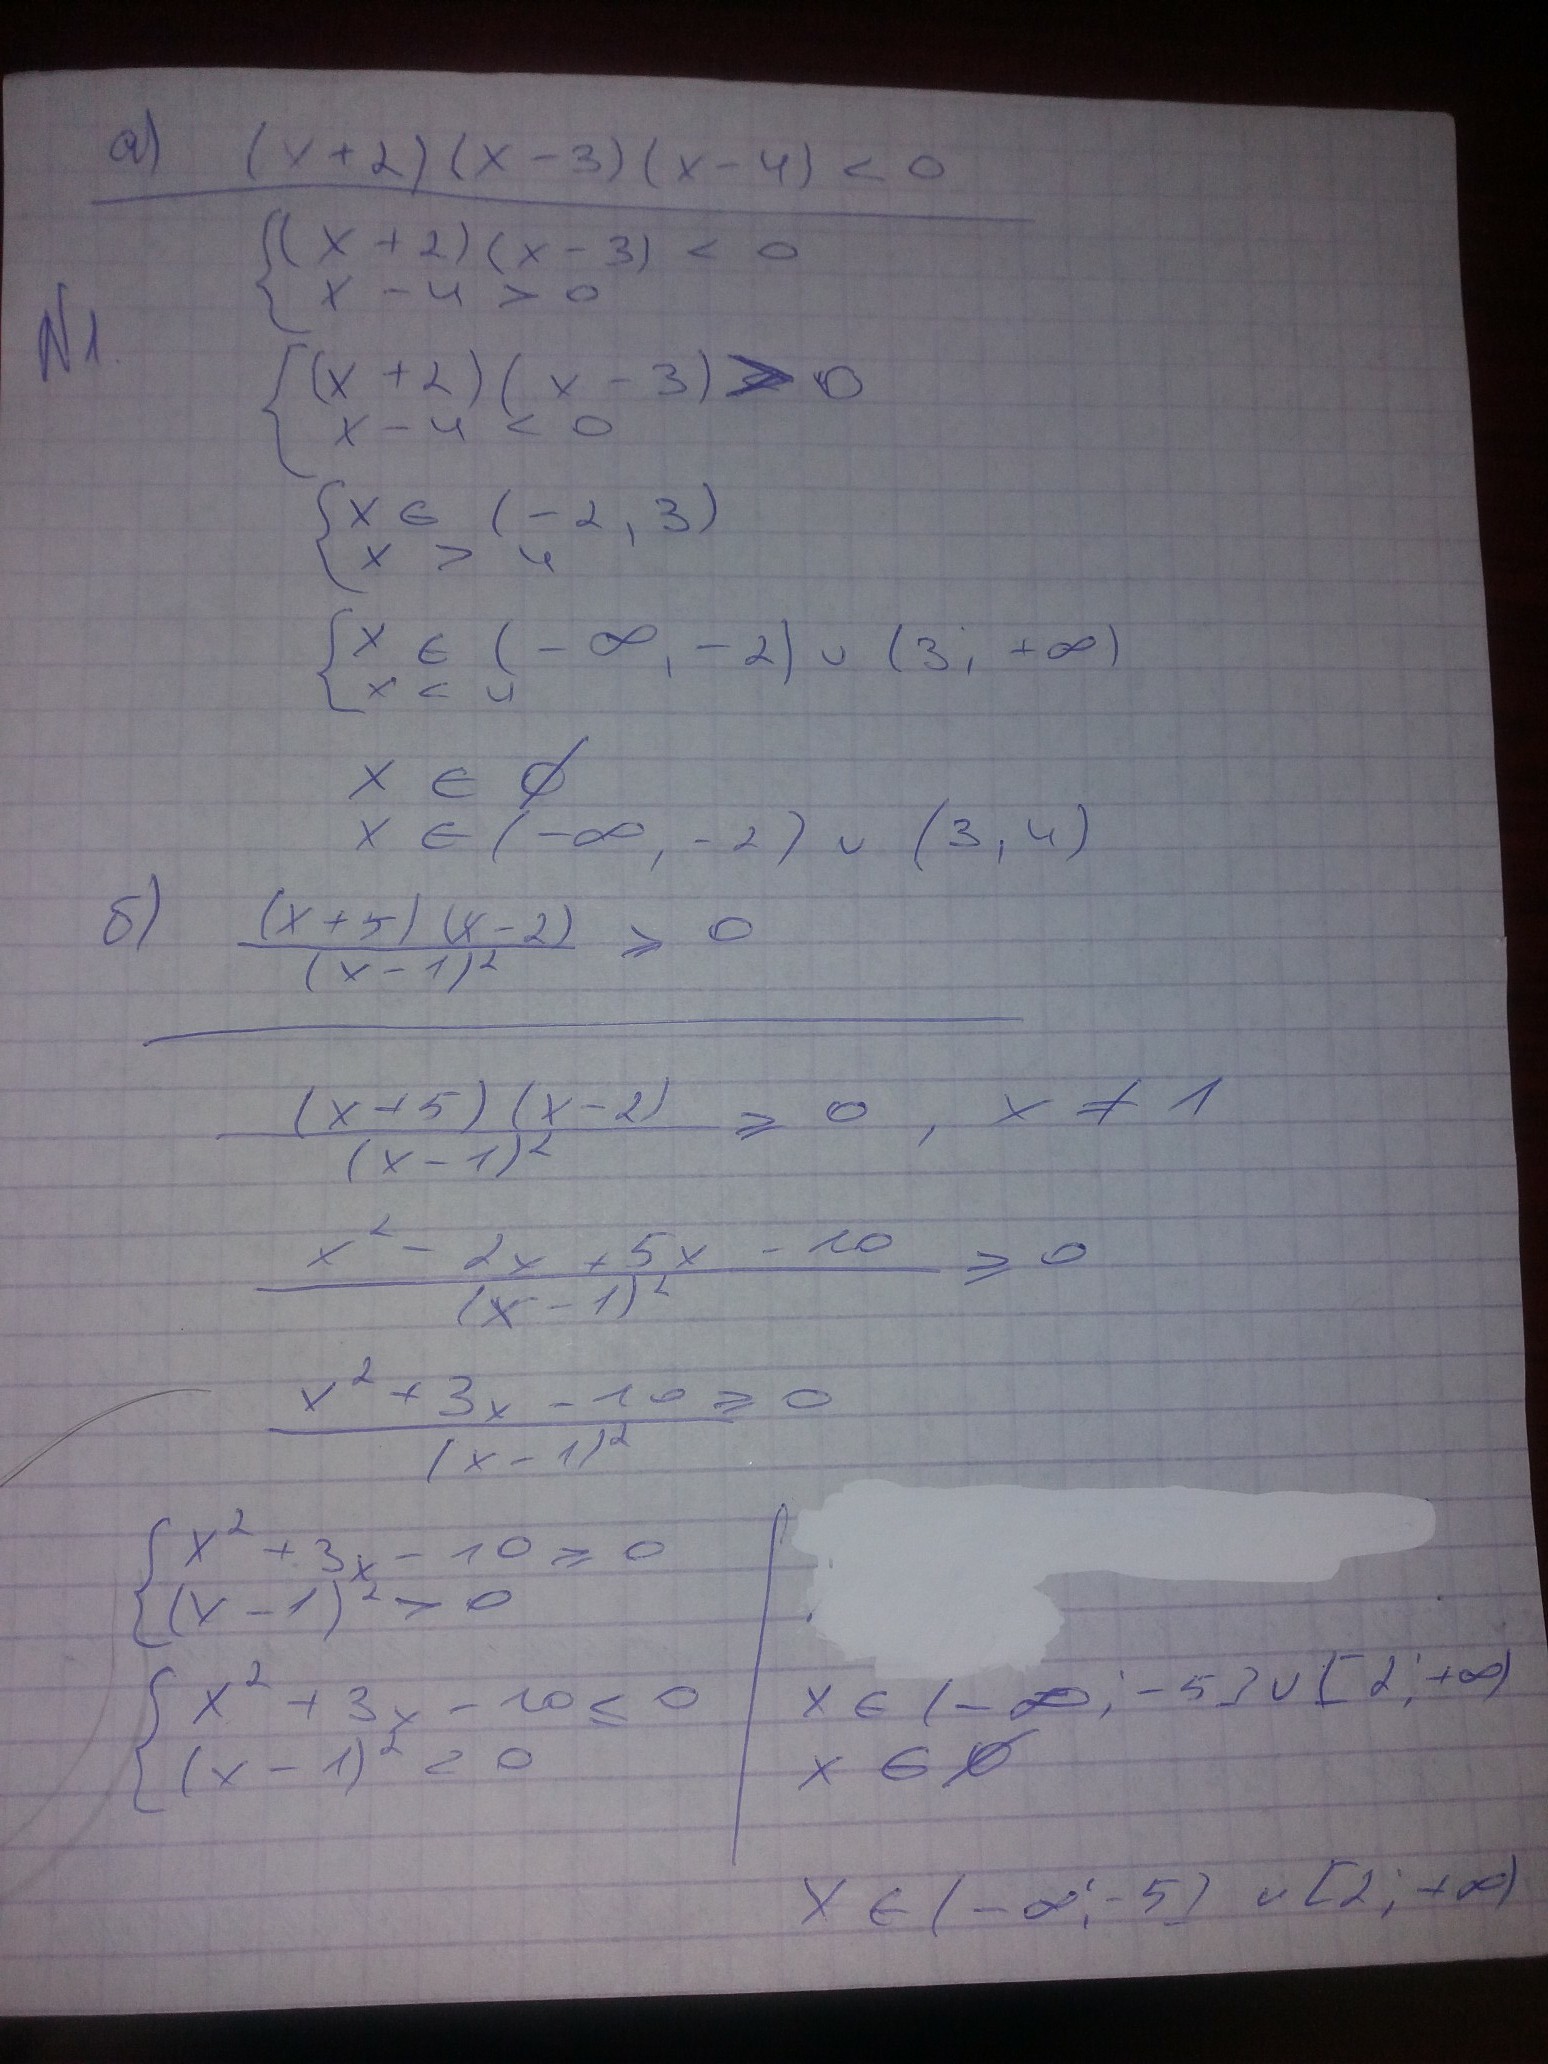 а) (x+2)(x-3)(x-4) < 0
{(x+2)(x-3) < 0
x-4 > 0
N1.
{(x+2)(x-3) > 0
x-4 < 0
{x ∈ (-2, 3)
x > 4
{x ∈ (-∞, -2) ∪ (3; +∞)
x < 4
x ∈ ∅
x ∈ (-∞, -2) ∪ (3, 4)
б) (x+5)(x-2) ≥ 0
(x-1)²
(x+5)(x-2) ≥ 0, x ≠ 1
(x-1)²
x² - 2x + 5x - 10 ≥ 0
(x-1)²
x² + 3x - 10 ≥ 0
(x-1)²
{x² + 3x - 10 ≥ 0
(x-1)² > 0
{x² + 3x - 10 ≤ 0
(x-1)² < 0
x ∈ (-∞; -5] ∪ [2; +∞)
x ∈ ∅
x ∈ (-∞; -5] ∪ [2; +∞)